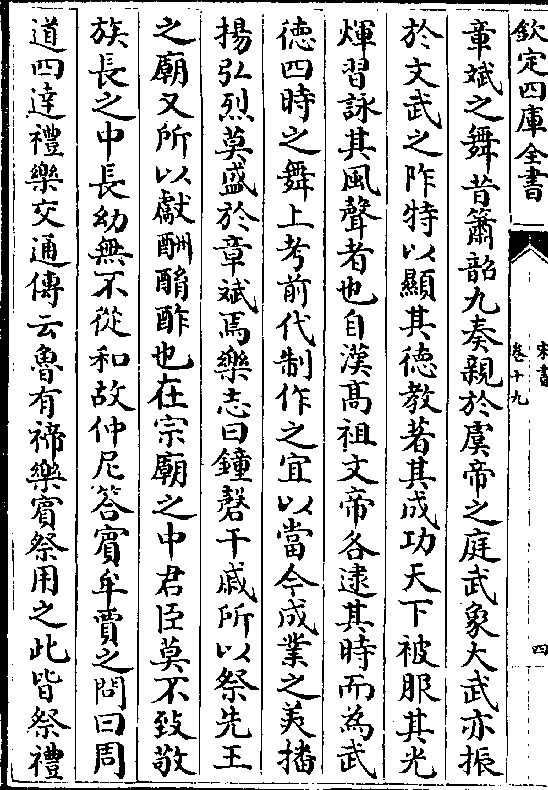 欽定四庫全書
宋書
卷十九
四
章斌之舞昔簫韶九奏親於虞帝之庭武象大武亦振
於文武之阼特以顯其德教著其成功天下被服其光
煇習詠其風聲者也自漢髙祖文帝各逮其時而為武
徳四時之舞上考前代制作之宜以當今成業之美播
揚弘烈莫盛於章斌焉樂志曰鐘磬干戚所以祭先王
之廟又所以獻酬酳酢也在宗廟之中君臣莫不致敬
族長之中長幼無不從和故仲尼答賓牟賈之問曰周
道四達禮樂交通傳云魯有禘樂賓祭用之此皆祭禮